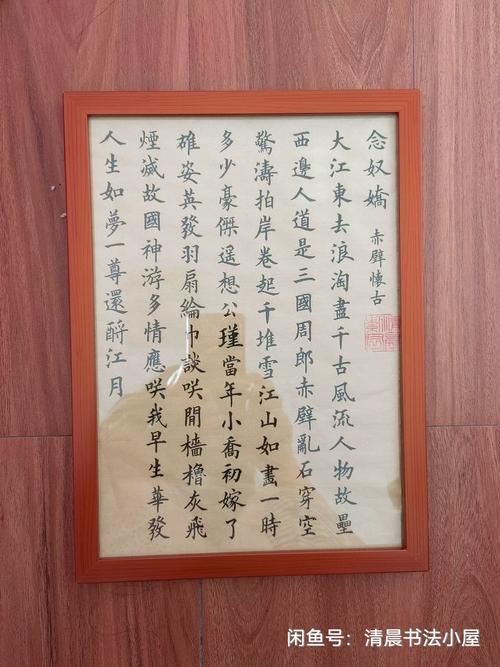 念奴嬌 赤壁懷古
大江東去浪淘盡千古風流人物故壘
西邊人道是三國周郎赤壁亂石穿空
驚濤拍岸卷起千堆雪江山如畫一時
多少豪傑遥想公瑾當年小喬初嫁了
雄姿英發羽扇綸巾談咲閒檣櫓灰飛
煙滅故國神游多情應咲我早生華發
人生如夢一尊還酹江月
闲鱼号：清晨书法小屋